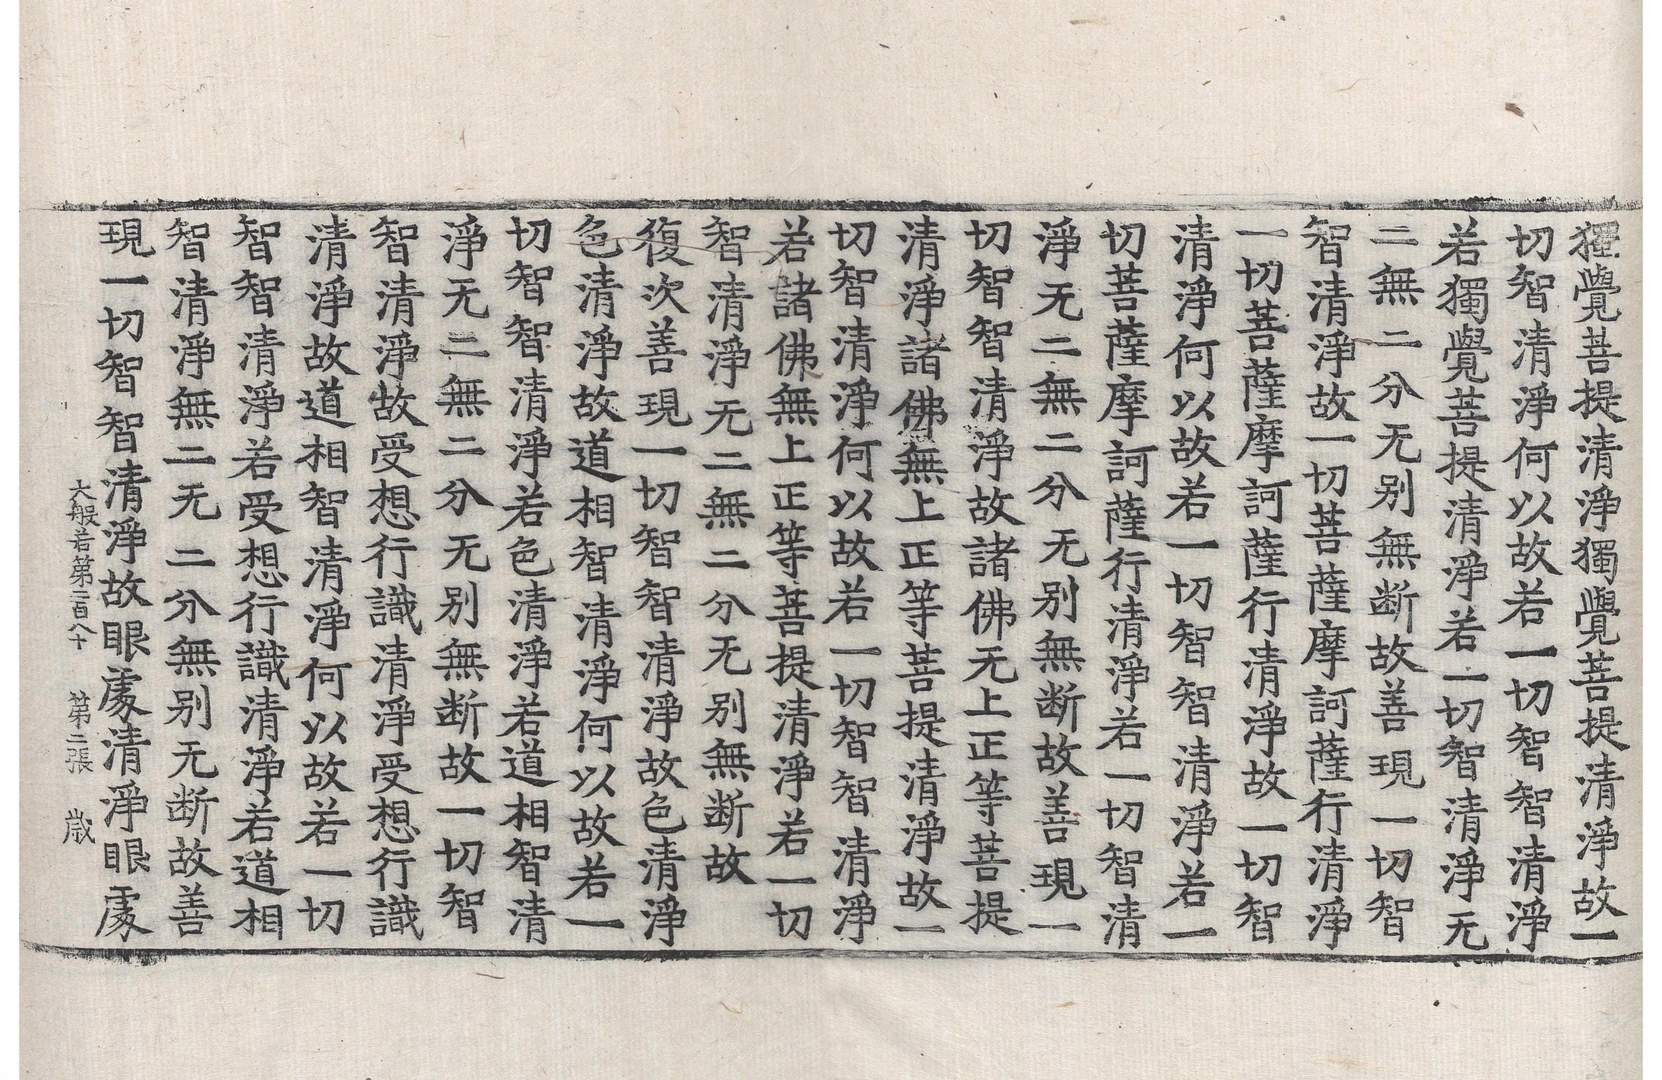 獨覺菩提清淨獨覺菩提清淨故一
切智清淨何以故若一切智智清淨
若獨覺菩提清淨若一切智清淨无
二無二分无别無断故善現一切智
智清淨故一切菩薩摩訶薩行清淨
一切菩薩摩訶薩行清淨故一切智
清淨何以故若一切智智清淨若一
切菩薩摩訶薩行清淨若一切智清
淨无二無二分无别無断故善現一
切智智清淨故諸佛无上正等菩提
清淨諸佛無上正等菩提清淨故一
切智清淨何以故若一切智智清淨
若諸佛無上正等菩提清淨若一切
智清淨无二無二分无别無断故
復次善現一切智智清淨故色清淨
色清淨故道相智清淨何以故若一
切智智清淨若色清淨若道相智清
淨无二無二分无别無断故一切智
智清淨故受想行識清淨受想行識
清淨故道相智清淨何以故若一切
智智清淨若受想行識清淨若道相
智清淨無二无二分無别无断故善
現一切智智清淨故眼處清淨眼處
大般若第二百八十 第二張 歲